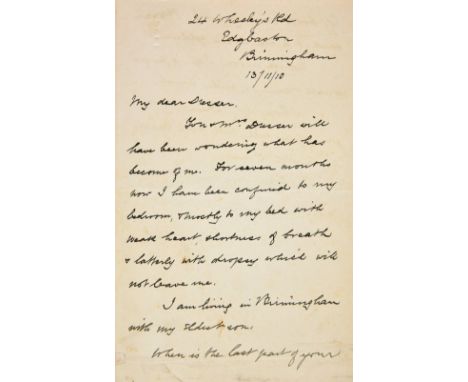 24 Wheeley's Rd
Edgbaston
Birmingham
13/11/10
My dear Dresser.
You & Mrs Dresser will
have been wondering what has
become of me. For seven months
now I have been confined to my
bedroom, & mostly to my bed with
weak heart shortness of breath
& latterly with dropsy which will
not leave me.
I am living in Birmingham
with my eldest son.
When is the last part of your